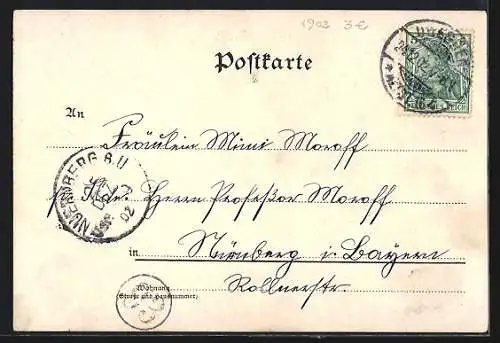 1902 3 €
Postkarte
An
Fräulein Mimi Moroff
Herrn Professor Moroff
in Nürnberg i. Bayern
Wohnung
(Straße und Hausnummer)
Rollnerstr.
NUERNBERG 8.U